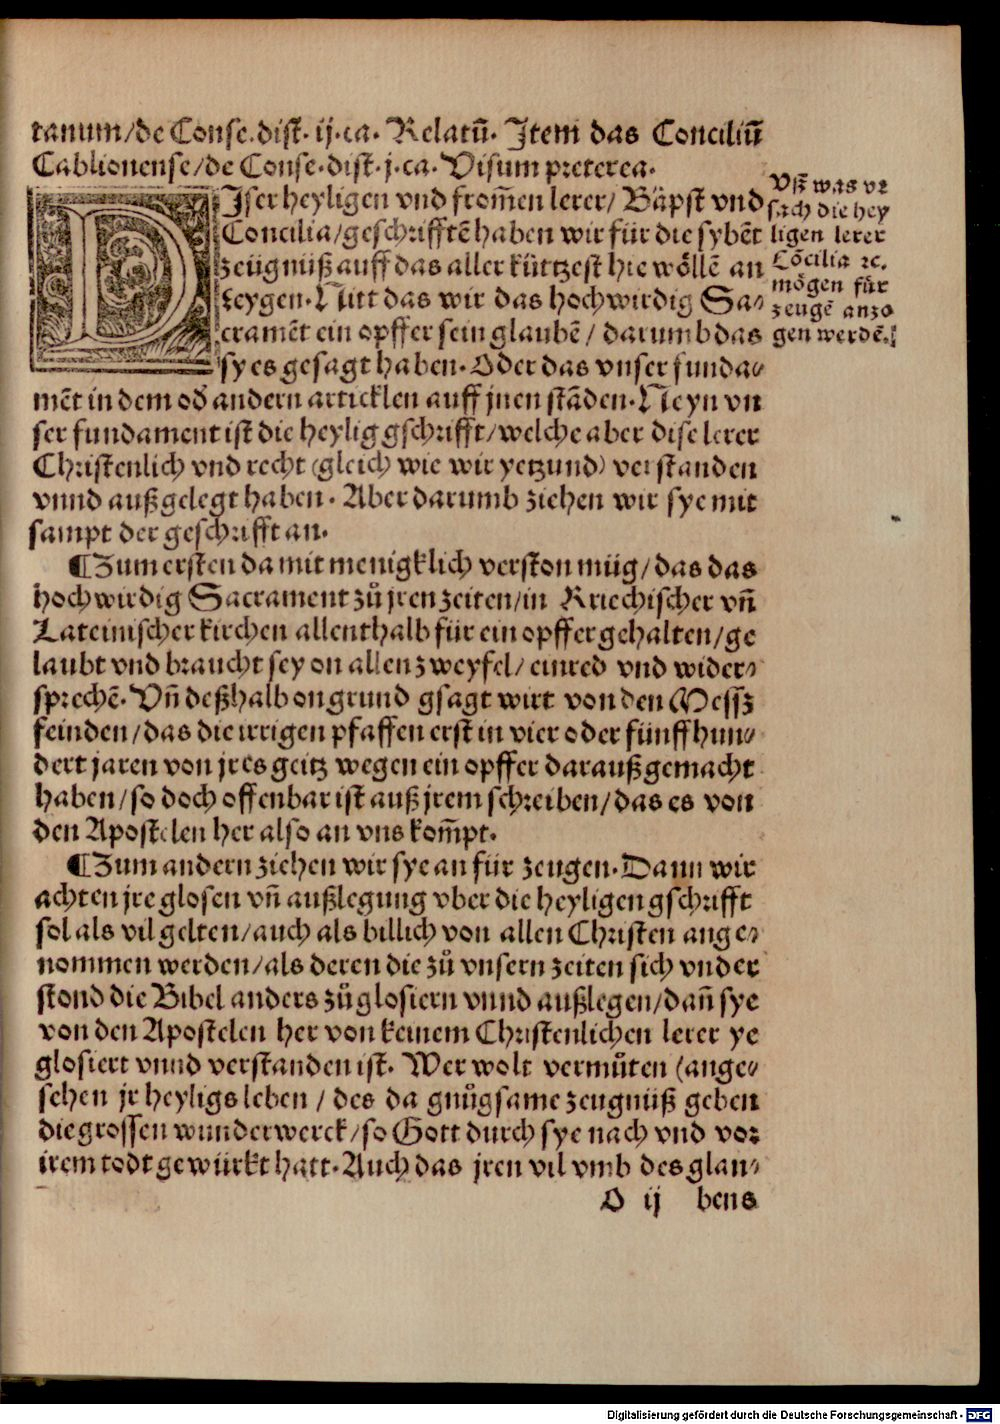 tanum/de Conse.dist. ij.ca. Relatū. Item das Conciliū
Cablionense/de Conse.dist.j.ca. Visum preterea.
DIser heyligen vnd from̄en lerer/ Bäpst vnd
Concilia/geschrifftē haben wir für die sybēt
zeügnüß auff das aller kürtzest hie wöllē an
zeygen. Nitt das wir das hochwirdig Sa⸗
cramēt ein opffer sein glaubē/ darumb das
sy es gesagt haben. Oder das vnser funda⸗
mēt in dem od̄ andern articklen auff jnen stāden. Neyn vn
ser fundament ist die heylig gschrifft/welche aber dise lerer
Christenlich vnd recht (gleich wie wir yetzund) verstanden
vnnd außgelegt haben. Aber darumb ziehen wir sye mit
sampt der geschrifft an.
¶Zum ersten da mit menigklich verston müg/das das
hochwirdig Sacrament zů jren zeiten/in Kriechischer vn̄
Lateinischer kirchen allenthalb für ein opffer gehalten/ge
laubt vnd braucht sey on allen zweyfel/ einred vnd wider⸗
sprechē. Vn̄ deßhalb on grund gsagt wirt von den Messz
feinden/das die irrigen pfaffen erst in vier oder fünff hun⸗
dert jaren von jres geitz wegen ein opffer darauß gemacht
haben/so doch offenbar ist auß jrem schreiben/das es von
den Apostelen her also an vns kom̄pt.
¶Zum andern ziehen wir sye an für zeugen. Dann wir
achten jre glosen vn̄ außlegung vber die heyligen gschrifft
sol als vil gelten/auch als billich von allen Christen ange⸗
nommen werden/als deren die zů vnsern zeiten sich vnder
stond die Bibel anders zů glosiern vnnd außlegen/dan̄ sye
von den Apostelen her von keinem Christenlichen lerer ye
glosiert vnnd verstanden ist. Wer wolt vermůten (ange⸗
sehen jr heyligs leben / des da gnůgsame zeugnüß geben
die grossen wunderwerck/so Gott durch sye nach vnd vor
irem todt gewürkt hatt. Auch das jren vil vmb des glau⸗
O ij bens
Vß was vr
sach die hey
ligen lerer
Cōcilia ꝛc.
mögen für
zeugē anzo
gen werdē.
Digitalisierung gefördert durch die Deutsche Forschungsgemeinschaft - DFG